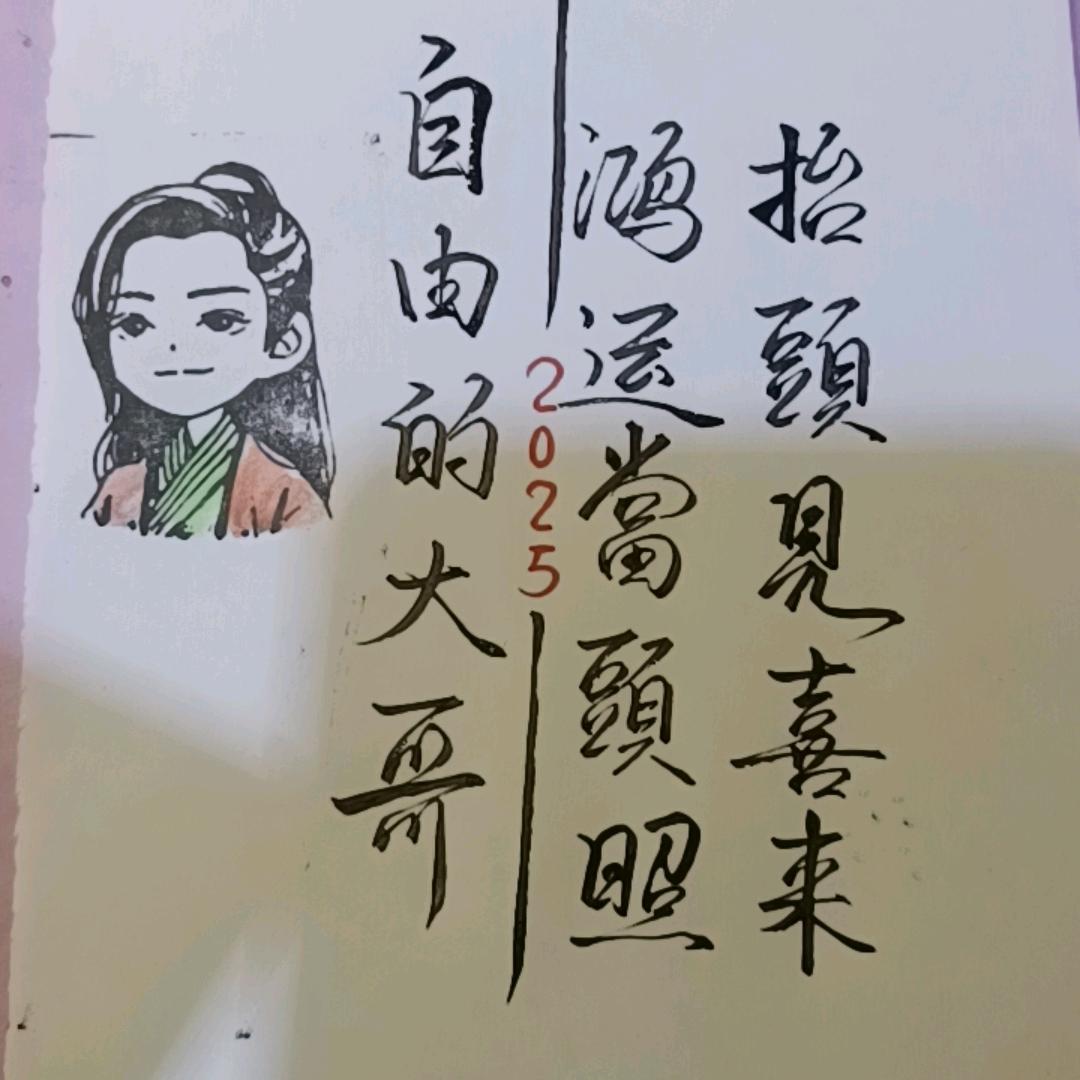 抬頭見喜来
鴻运當頭照
2025
自由的大哥